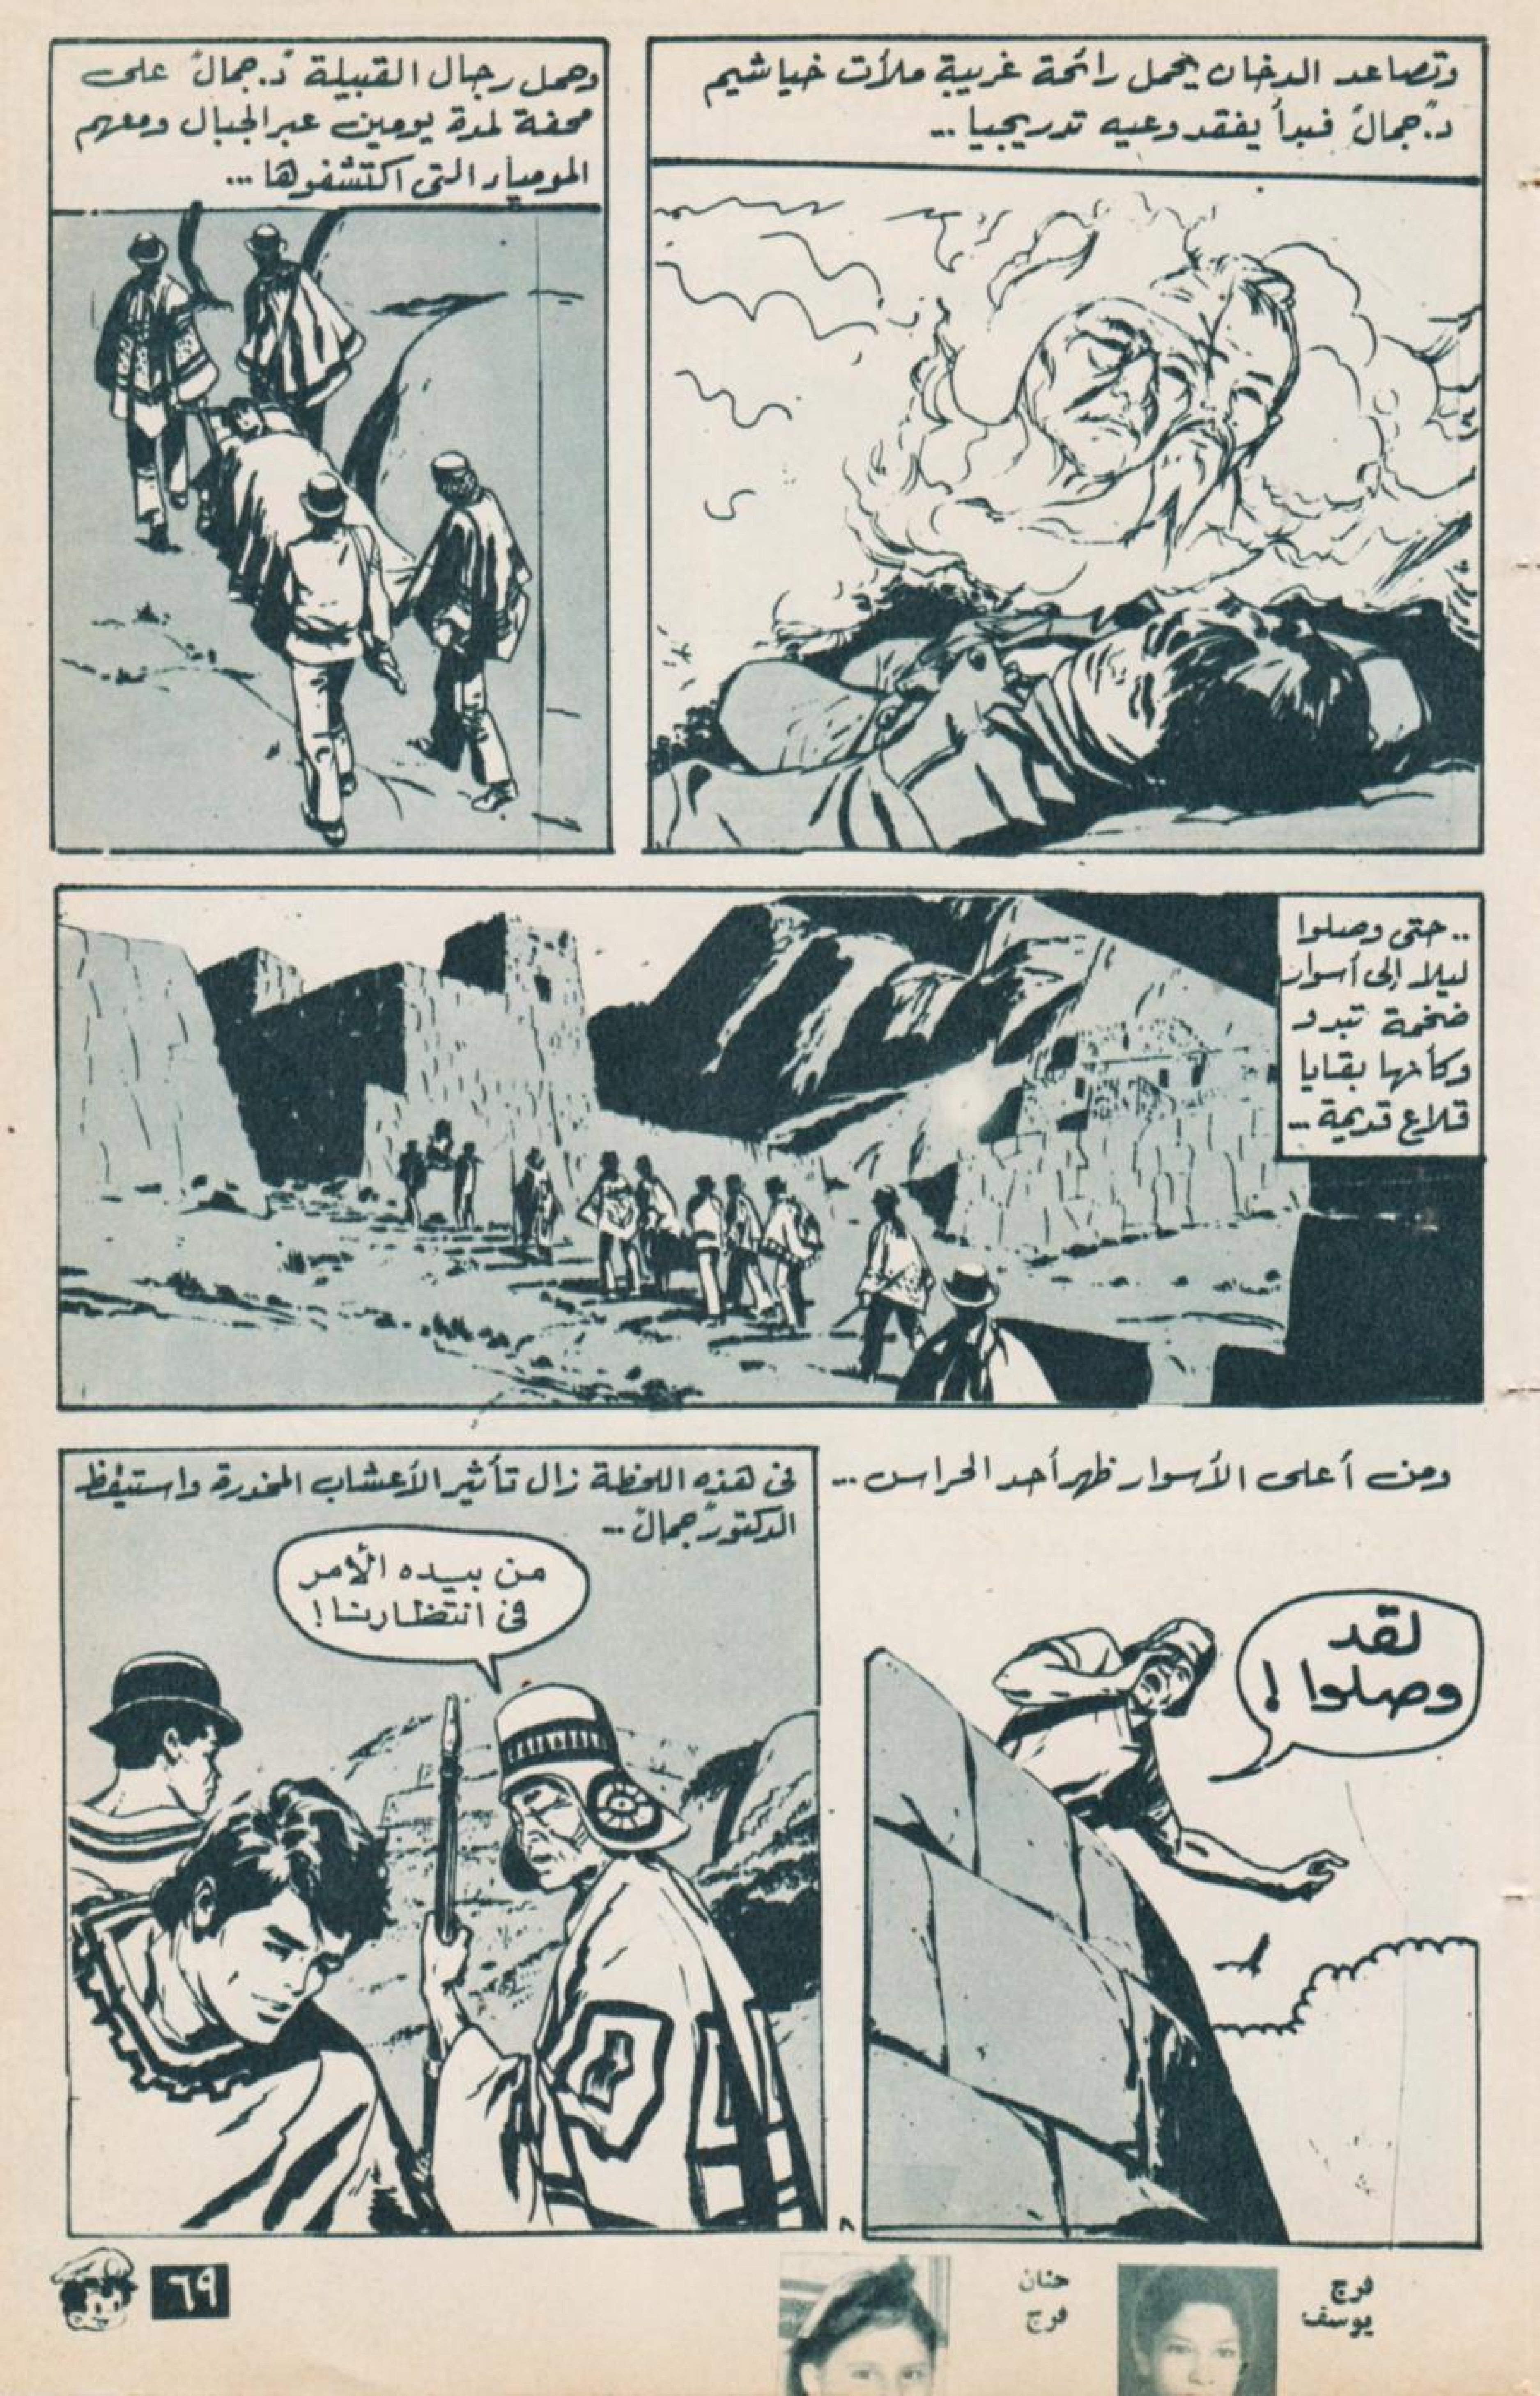 وتصاعد الدخان يحمل رائحة غريبة ملأت خياشيم
د."جمال" فبدأ يفقد وعيه تدريجيا ...
وحمل رجال القبيلة د."جمال" على
محفة لمدة يومين عبر الجبال ومعهم
المومياء التى اكتشفوها ...
.. حتى وصلوا
ليلا إلى أسوار
ضخمة تبدو
وكأنها بقايا
قلاع قديمة ...
ومن أعلى الأسوار ظهر أحد الحراس ...
لقد
وصلوا !
فى هذه اللحظة زال تأثير الأعشاب المخدرة واستيقظ
الدكتور "جمال" ...
من بيده الأمر
فى انتظارنا !
٨
فرج
يوسف
حنان
فرج
٦٩